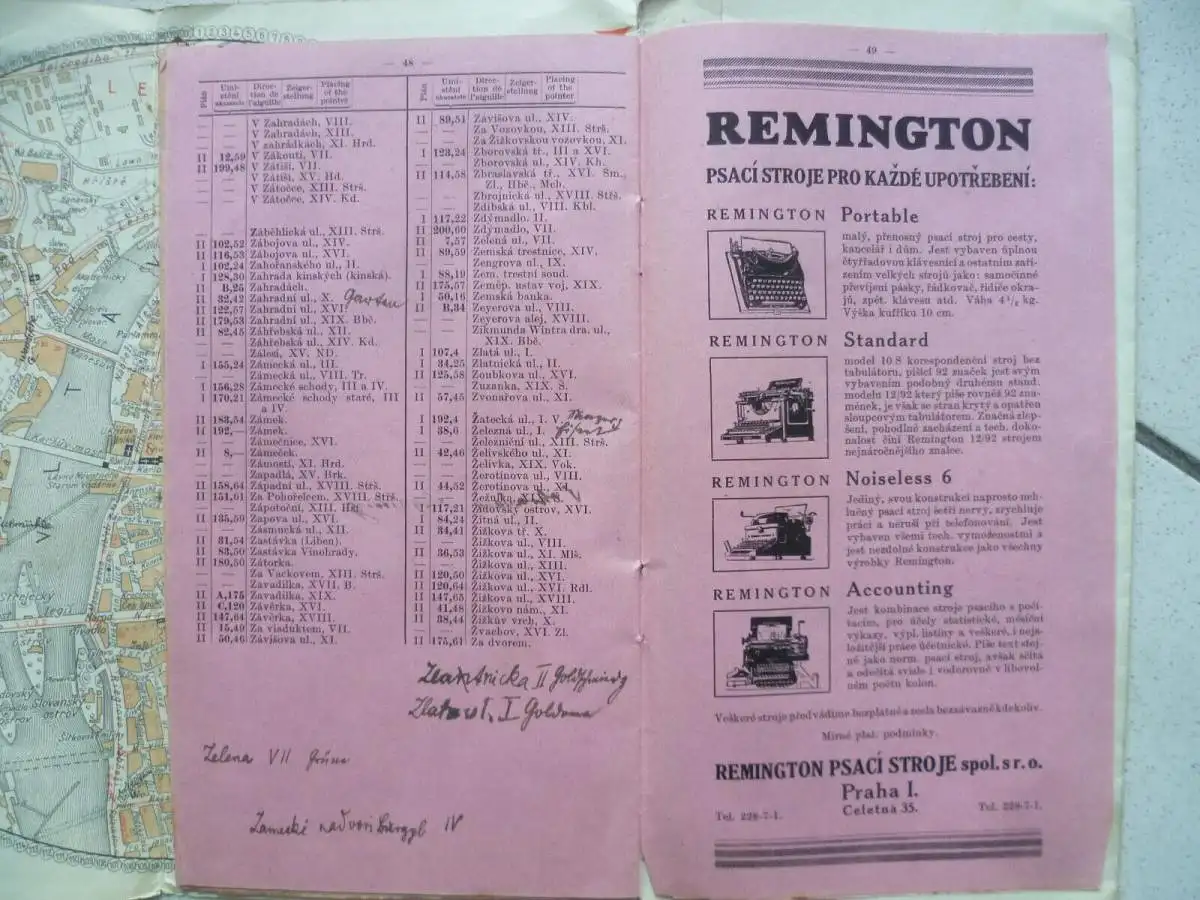 — 48 —
Plán
Umístění ukazatele
Direction de l'aiguille
Zeigerstellung
Placing of the pointer
— — V Zahradách, VIII.
— — V Zahradách, XIII.
— — V zahrádkách, XI. Hrd.
II 12,59 V Zákoutí, VII.
II 199,48 V Zátiší, VII.
— — V Zátiší, XV. Hd.
— — V Zátočce, XIII. Strš.
— — V Zátočce, XIV. Kd.
— — Záběhlická ul., XIII. Strš.
II 102,52 Zábojova ul., XIV.
II 116,53 Zábojova ul., XVI.
I 102,24 Zahořanského ul., II.
I 128,30 Zahrada kinských (kinská).
II B,25 Zahradách.
II 32,42 Zahradní ul., X. Garten
II 122,57 Zahradní ul., XVI.
II 179,53 Zahradní ul., XIX. Bbě.
II 82,45 Záhřebská ul., XII.
— — Záhřebská ul., XIV. Kd.
— — Zálesí, XV. ND.
I 155,24 Zámecká ul., III.
— — Zámecká ul., VIII. Tr.
I 156,28 Zámecké schody, III a IV.
I 170,21 Zámecké schody staré, III
a IV.
II 183,54 Zámek.
II 192,— Zámek.
— — Zámečnice, XVI.
II 8,— Zámeček.
— — Zámostí, XI. Hrd.
— — Zapadlá, XV. Brk.
II 158,64 Západní ul., XVIII. Strš.
II 151,61 Za Pohořelcem, XVIII. Strš.
— — Zápotoční, XIII. Hst.
II 135,59 Zapova ul., XVI.
— — Zásmucká ul., XII.
II 31,54 Zastávka (Libeň).
II 83,50 Zastávka Vinohrady.
II 180,50 Zátorka.
— — Za Vackovem, XIII. Strš.
— — Zavadilka, XVII. B.
II A,175 Zavadilka, XIX.
II C,120 Závěrka, XVI.
II 147,64 Závěrka, XVIII.
II 15,49 Za viaduktem, VII.
II 50,46 Závišova ul., XI.
Plán
Umístění ukazatele
Direction de l'aiguille
Zeigerstellung
Placing of the pointer
II 89,51 Závišova ul., XIV.
— — Za Vozovkou, XIII. Strš.
— — Za Žižkovskou vozovkou, XI.
I 123,24 Zborovská tř., III a XVI.
— — Zborovská ul., XIV. Kh.
II 114,58 Zbraslavská tř., XVI. Sm.,
Zl., Hbě., Mch.
— — Zbrojnická ul., XVIII. Střš.
— — Zdibská ul., VIII. Kbl.
I 117,22 Zdymadlo, II.
II 200,60 Zdymadlo, VII.
II 7,57 Zelená ul., VII.
II 89,59 Zemská trestnice, XIV.
— — Zengrova ul., IX.
I 88,19 Zem. trestní soud.
II 175,57 Zeměp. ustav voj., XIX.
I 50,16 Zemská banka.
II B,34 Zeyerova ul., VIII.
— — Zeyerova alej, XVIII.
— — Zikmunda Wintra dra. ul.,
XIX. Bbě.
I 107,4 Zlatá ul., I.
I 34,25 Zlatnická ul., II.
II 125,58 Zoubkova ul., XVI.
— — Zuzanka, XIX. Š.
II 57,45 Zvonařova ul., XI.
I 192,4 Žatecká ul., I. V.
I 88,6 Železná ul., I.
— — Železniční ul., XIII. Strš.
II 42,46 Želivského ul., XI.
— — Želivka, XIX. Vok.
— — Žerotínova ul., VIII.
II 44,52 Žerotínova ul., XI.
— — Žežulka, XIX. S.
I 117,21 Židovský ostrov, XVI.
I 84,24 Žitná ul., II.
II 34,41 Žižkova tř. X.
— — Žižkova ul., VIII.
II 36,53 Žižkova ul., XI. Mlš.
— — Žižkova ul., XIII.
II 120,50 Žižkova ul., XVI.
II 120,64 Žižkova ul., XVI. Rdl.
II 147,65 Žižkova ul., XVIII.
II 41,48 Žižkovo nám., XI.
II 38,44 Žižkův vrch, X.
— — Žvachov, XVI. Zl.
II 175,61 Za dvorem.
II
Zlata ul. I
Zelena VII Grüne
Zamecké nadvoři IV
— 49 —
REMINGTON
PSACÍ STROJE PRO KAŽDÉ UPOTŘEBENÍ:
REMINGTON Portable
malý, přenosný psací stroj pro cesty,
kancelář i dům. Jest vybaven úplnou
čtyřřadovou klávesnicí a ostatním zaří-
zením velkých strojů jako: samočinné
převíjení pásky, řádkovač, řidiče okra-
jů, zpět. klávesu atd. Váha 4½ kg.
Výška kufříku 10 cm.
REMINGTON Standard
model 10 S korespondenční stroj bez
tabulátoru, píšící 92 značek jest svým
vybavením podobný druhému stand.
modelu 12/92 který píše rovněž 92 zna-
mének, je však se stran krytý a opatřen
sloupcovým tabulátorem. Značná zlep-
šení, pohodlné zacházení a tech. doko-
nalost činí Remington 12/92 strojem
nejnáročnějšího znalce.
REMINGTON Noiseless 6
Jediný, svou konstrukcí naprosto neh-
lučný psací stroj šetří nervy, zrychluje
práci a neruší při telefonování. Jest
vybaven všemi tech. vymoženostmi a
jest nezdolné konstrukce jako všechny
výrobky Remington.
REMINGTON Accounting
Jest kombinace stroje psacího s počí-
tacím, pro účely statistické, měsíční
výkazy, výpl. listiny a veškeré, i nejs-
ložitější práce účetnické. Píše text stej-
ně jako norm. psací stroj, avšak sčítá
a odečítá svisle i vodorovně v libovol-
ném počtu kolon.
Veškeré stroje předvádíme bezplatně a zcela bezzávazně kdekoliv.
Mírné plat. podmínky.
REMINGTON PSACÍ STROJE spol. s r. o.
Praha I.
Celetná 35.
Tel. 228-7-1. Tel. 228-7-1.